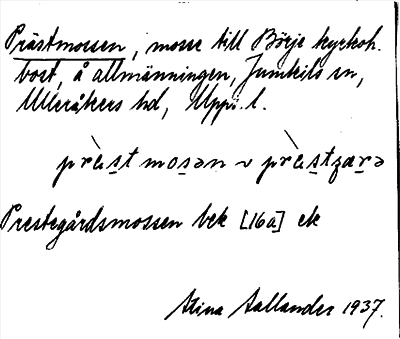 Prästmossen, mosse till Börje kyrkoh.
bost, å allmänningen, Jumkils sn,
Ulleråkers hd, Uppl. l.
Prestegårdsmossen bek [16a] ek
Stina Sallander 1937.